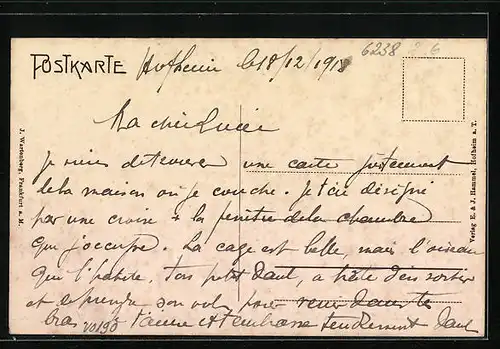 POSTKARTE
Hofheim le 18/12/1918
6238
Ma chérie
je viens de trouver une carte justement
de la maison où je couche. Je t'ai désigné
par une croix + la fenêtre de la chambre
que j'occupe. La cage est belle, mais l'oiseau
qui l'habite, ton petit Paul, a hâte d'en sortir
et prendre son vol pour venir dans tes
bras t'aime et t'embrasse tendrement Paul
J. Wartenberg, Frankfurt a. M.
Verlag E. & J. Hammel, Hofheim a. T.